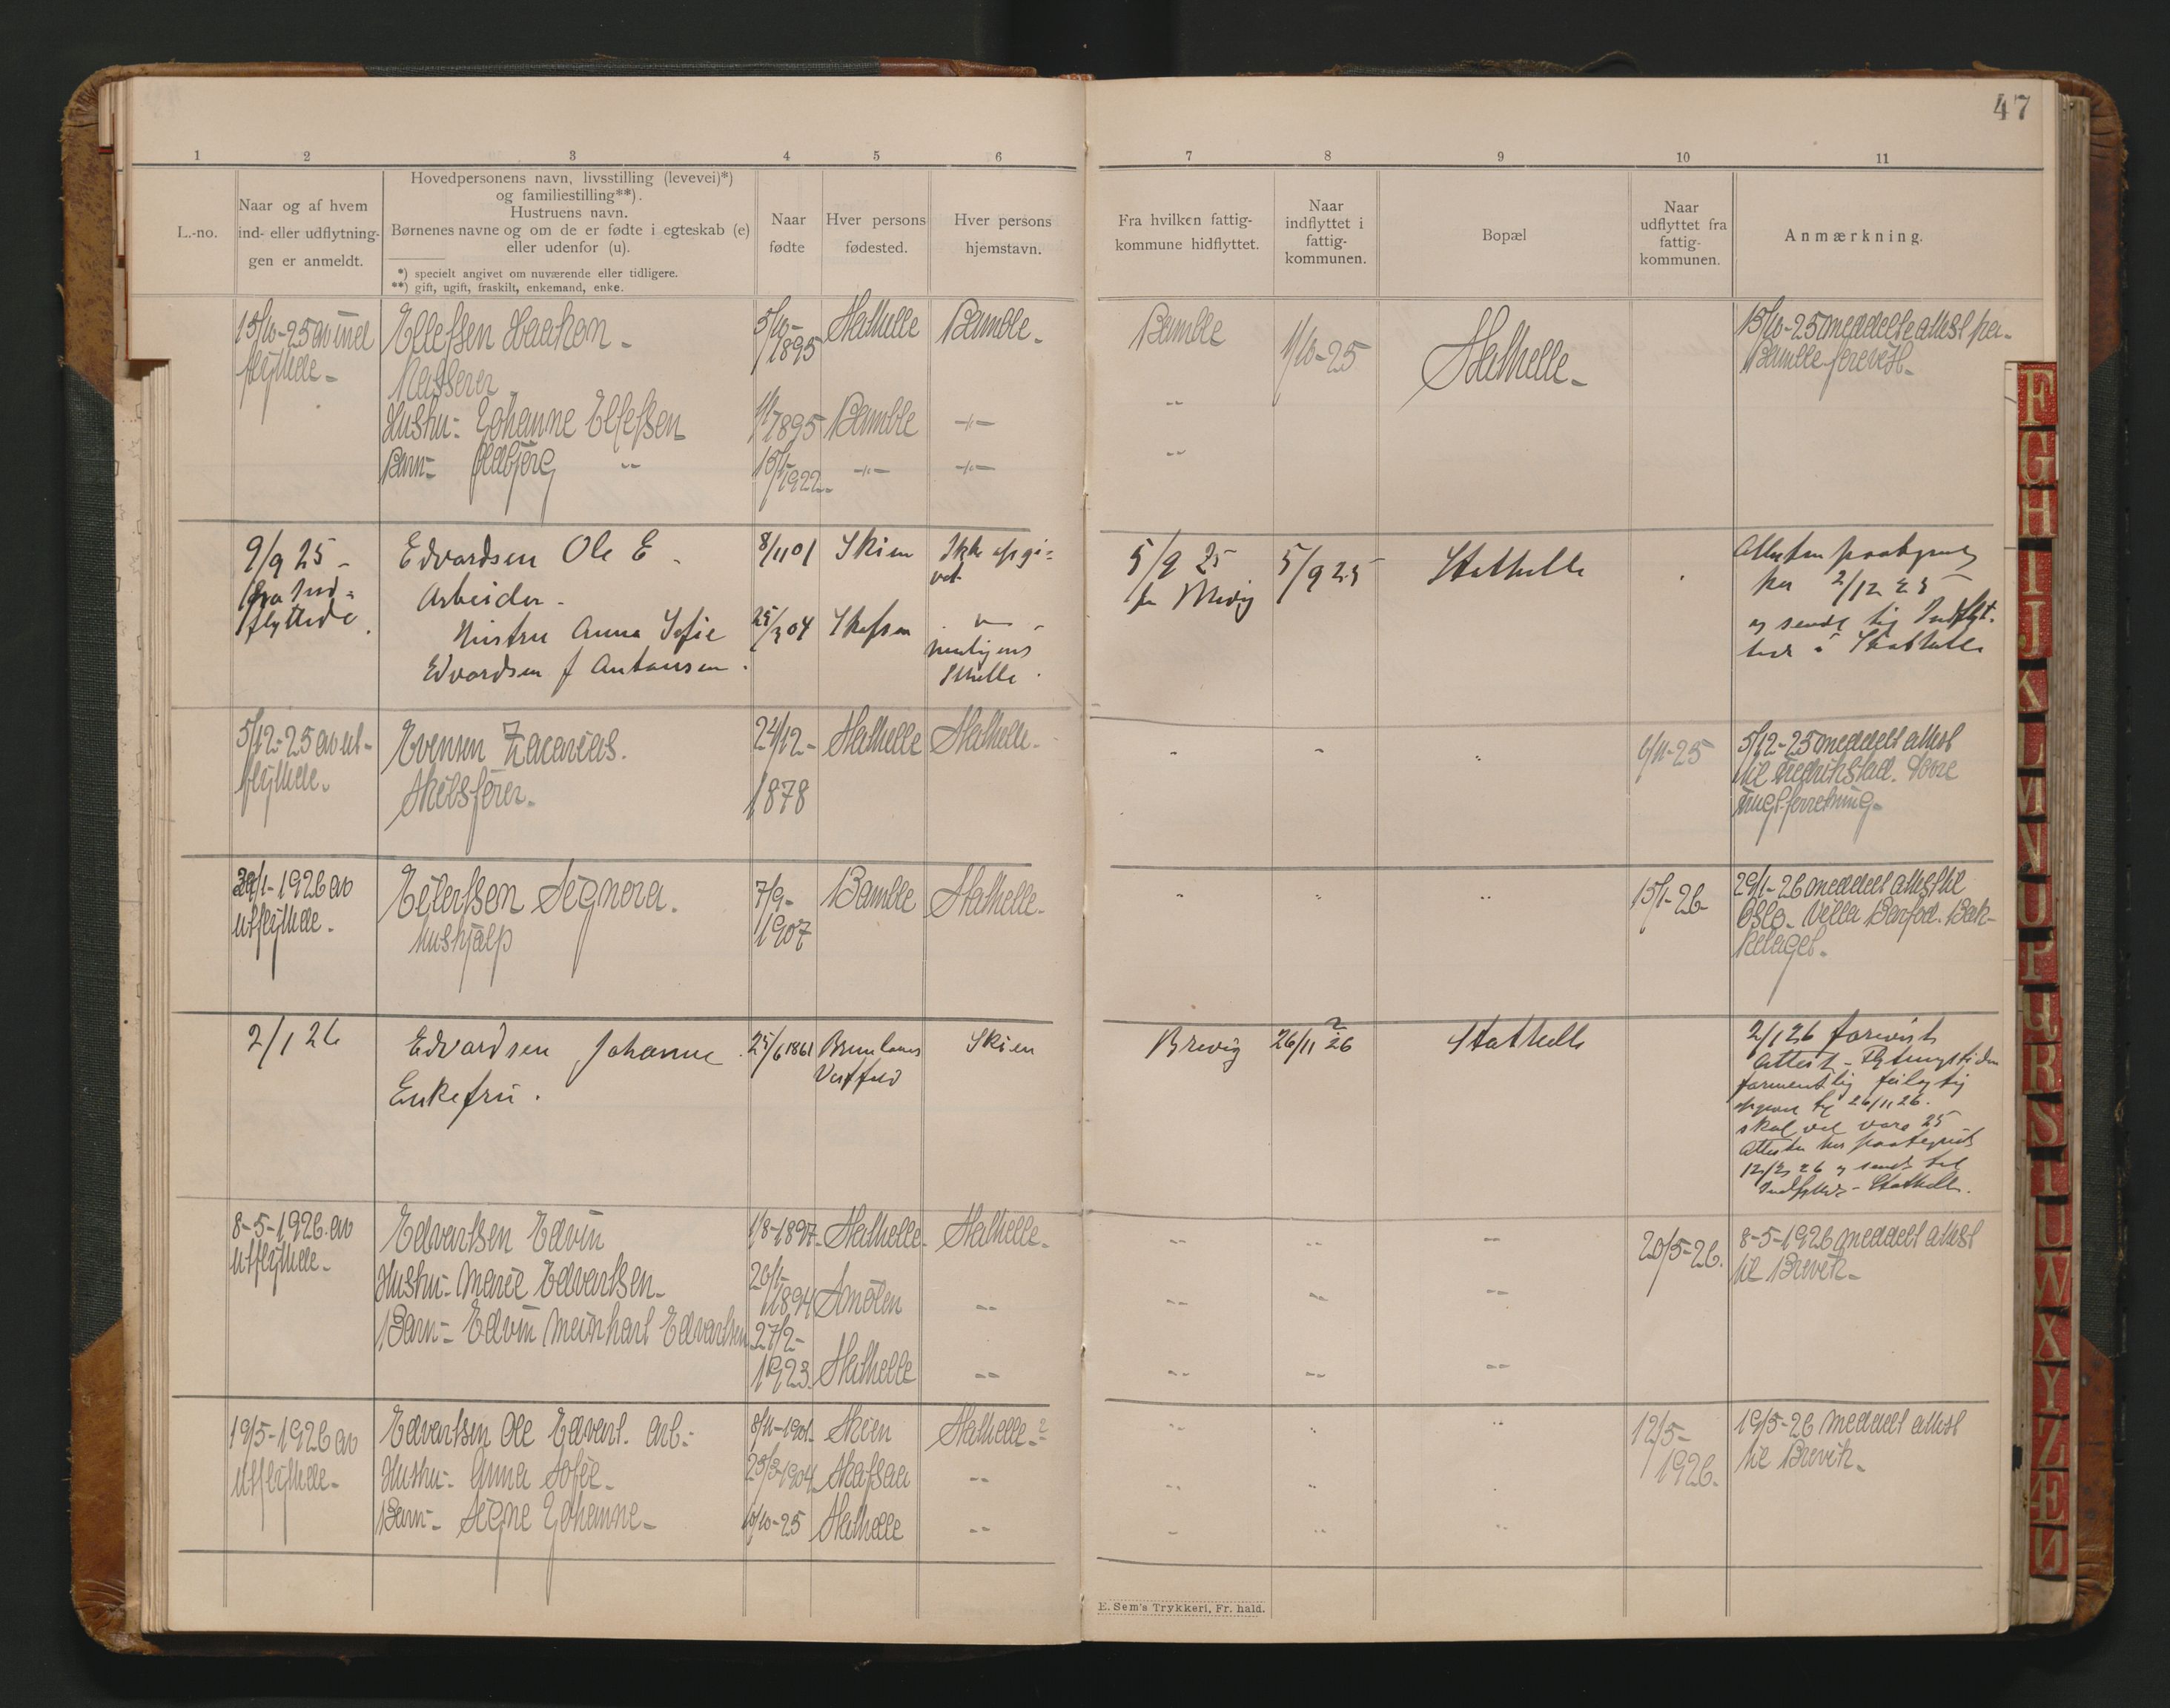 47
1 2 3 4 5 6 7 8 9 10 11
L.-no.
Naar og af hvem
ind- eller udflytnin-
gen er anmeldt.
Hovedpersonens navn, livsstilling (levevei)*)
og familiestilling**).
Hustruens navn.
Børnenes navne og om de er fødte i egteskab (e)
eller udenfor (u).
*) specielt angivet om nuværende eller tidligere.
**) gift, ugift, fraskilt, enkemand, enke.
Naar
fødte
Hver persons
fødested.
Hver persons
hjemstavn.
Fra hvilken fattig-
kommune hidflyttet.
Naar
indflyttet i
fattig-
kommunen.
Bopæl
Naar
udflyttet fra
fattig-
kommunen.
Anmærkning.
15/10-25 av ind
flyttede-
Ellefsen Haakon-
Kasserer
Hustru:- Johanne Ellefsen
Barn:- Oldbjørg -"-
5/10-
1895
1/1 1895
15/1-
1922-
Stathelle
Bamble
-"-
Bamble-
-"-
-"-
Bamble
-"-
-"-
1/10-25
Stathelle-
15/10-25 meddelte attest fra
Bamble forevist-
9/9 25-
fra Ind-
flyttede.
Edvardsen Ole E-
Arbeider-
Hustru Anna Sofie
Edvardsen f Antonsen.
8/11 01
25/3 04
Skien
Skafsaa
Ikke opgi-
vet
-"-
muligens
Sthelle.
5/9 25
fra Brevig
5/9 25
Stathelle
Attesten paategnet
her 2/12 25
og sendt til Indflyt-
tede i Stathelle
5/12-25 av ut-
flyttede-
Evensen Zacarias.
Skibsfører-
24/12-
1878
Stathelle
Stathelle-
6/11-25
5/12-25 meddelt attest
til Fredrikstad.
29/1-1926 av
utflyttede-
Eilertsen Signora.
Hushjælp
7/9-
1907
Bamble
Stathelle-
15/1-26-
29/1-26 meddelt attest til
Oslo- Villa Barfod. Bæk-
kelaget-
2/1 26
Edvardsen Johanne
Enkefru.
25/6 1861
Brunlanes
Vestfold
Skien
Brevig
26/11 26
Stathelle
2/1 26 forevist
Attest- Flytningstiden
formentlig feilagtig
opgivet til 26/11 26.
skal vel være 25
Attesten her paategnet
12/2 26 og sendt til
Indflyttede- Stathelle.
8-5-1926 av
utflyttede-
Edvartsen Edvin
Hustru:- Marie Edvartsen-
Barn:- Edvin Meinhart Edvartsen
1/8-1897-
26/1-
1894
27/2-
1923
Stathelle-
Smølen
Stathelle
Stathelle-
-"-
-"-
20/5-26.
8-5-1926 meddelt attest
til Brevik-
19/5-1926 av
utflyttede-
Edvartsen Ole Edvart. Arb:-
Hustru:- Anna Sofie-
Barn:- Signe Johanne-
8/11-1901-
25/3-1904
10/10-25
Skien
Skafsaa
Stathelle
Stathelle-?
-"-
-"-
12/5-
1926.
19/5-26 meddelt attest
til Brevik-
E. Sem's Trykkeri, Fr. hald.
F
G
H
I
J
K
L
M
N
O
P
Q
R
S
T
U
W
X
Y
Z
Æ